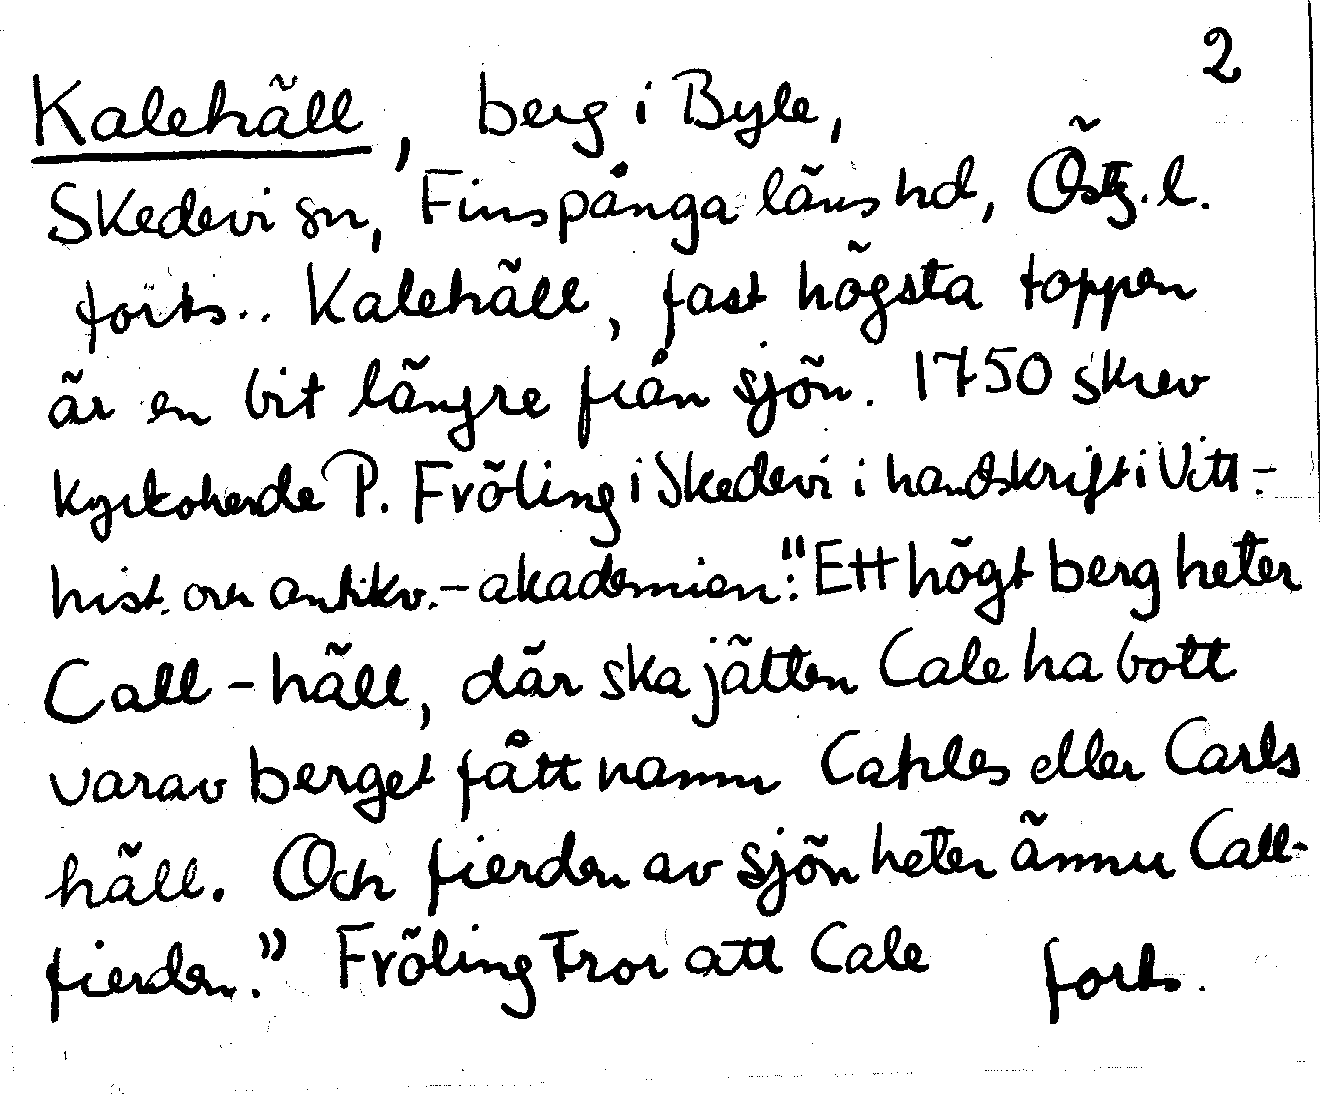 2
Kalehäll, berg i Byle,
Skedevi sn, Finspånga läns hd, Östg.l.
forts.. Kalehäll, fast högsta toppen
är en bit längre från sjön. 1750 skrev
kyrkoherde P. Fröling i Skedevi i handskrift i Vitt-
hist. och antikv.-akademien: "Ett högt berg heter
Call-häll, där ska jätten Cale ha bott
varav berget fått namn Cahles eller Carls
häll. Och fierden av sjön heter ännu Call-
fierden." Fröling tror att Cale forts.